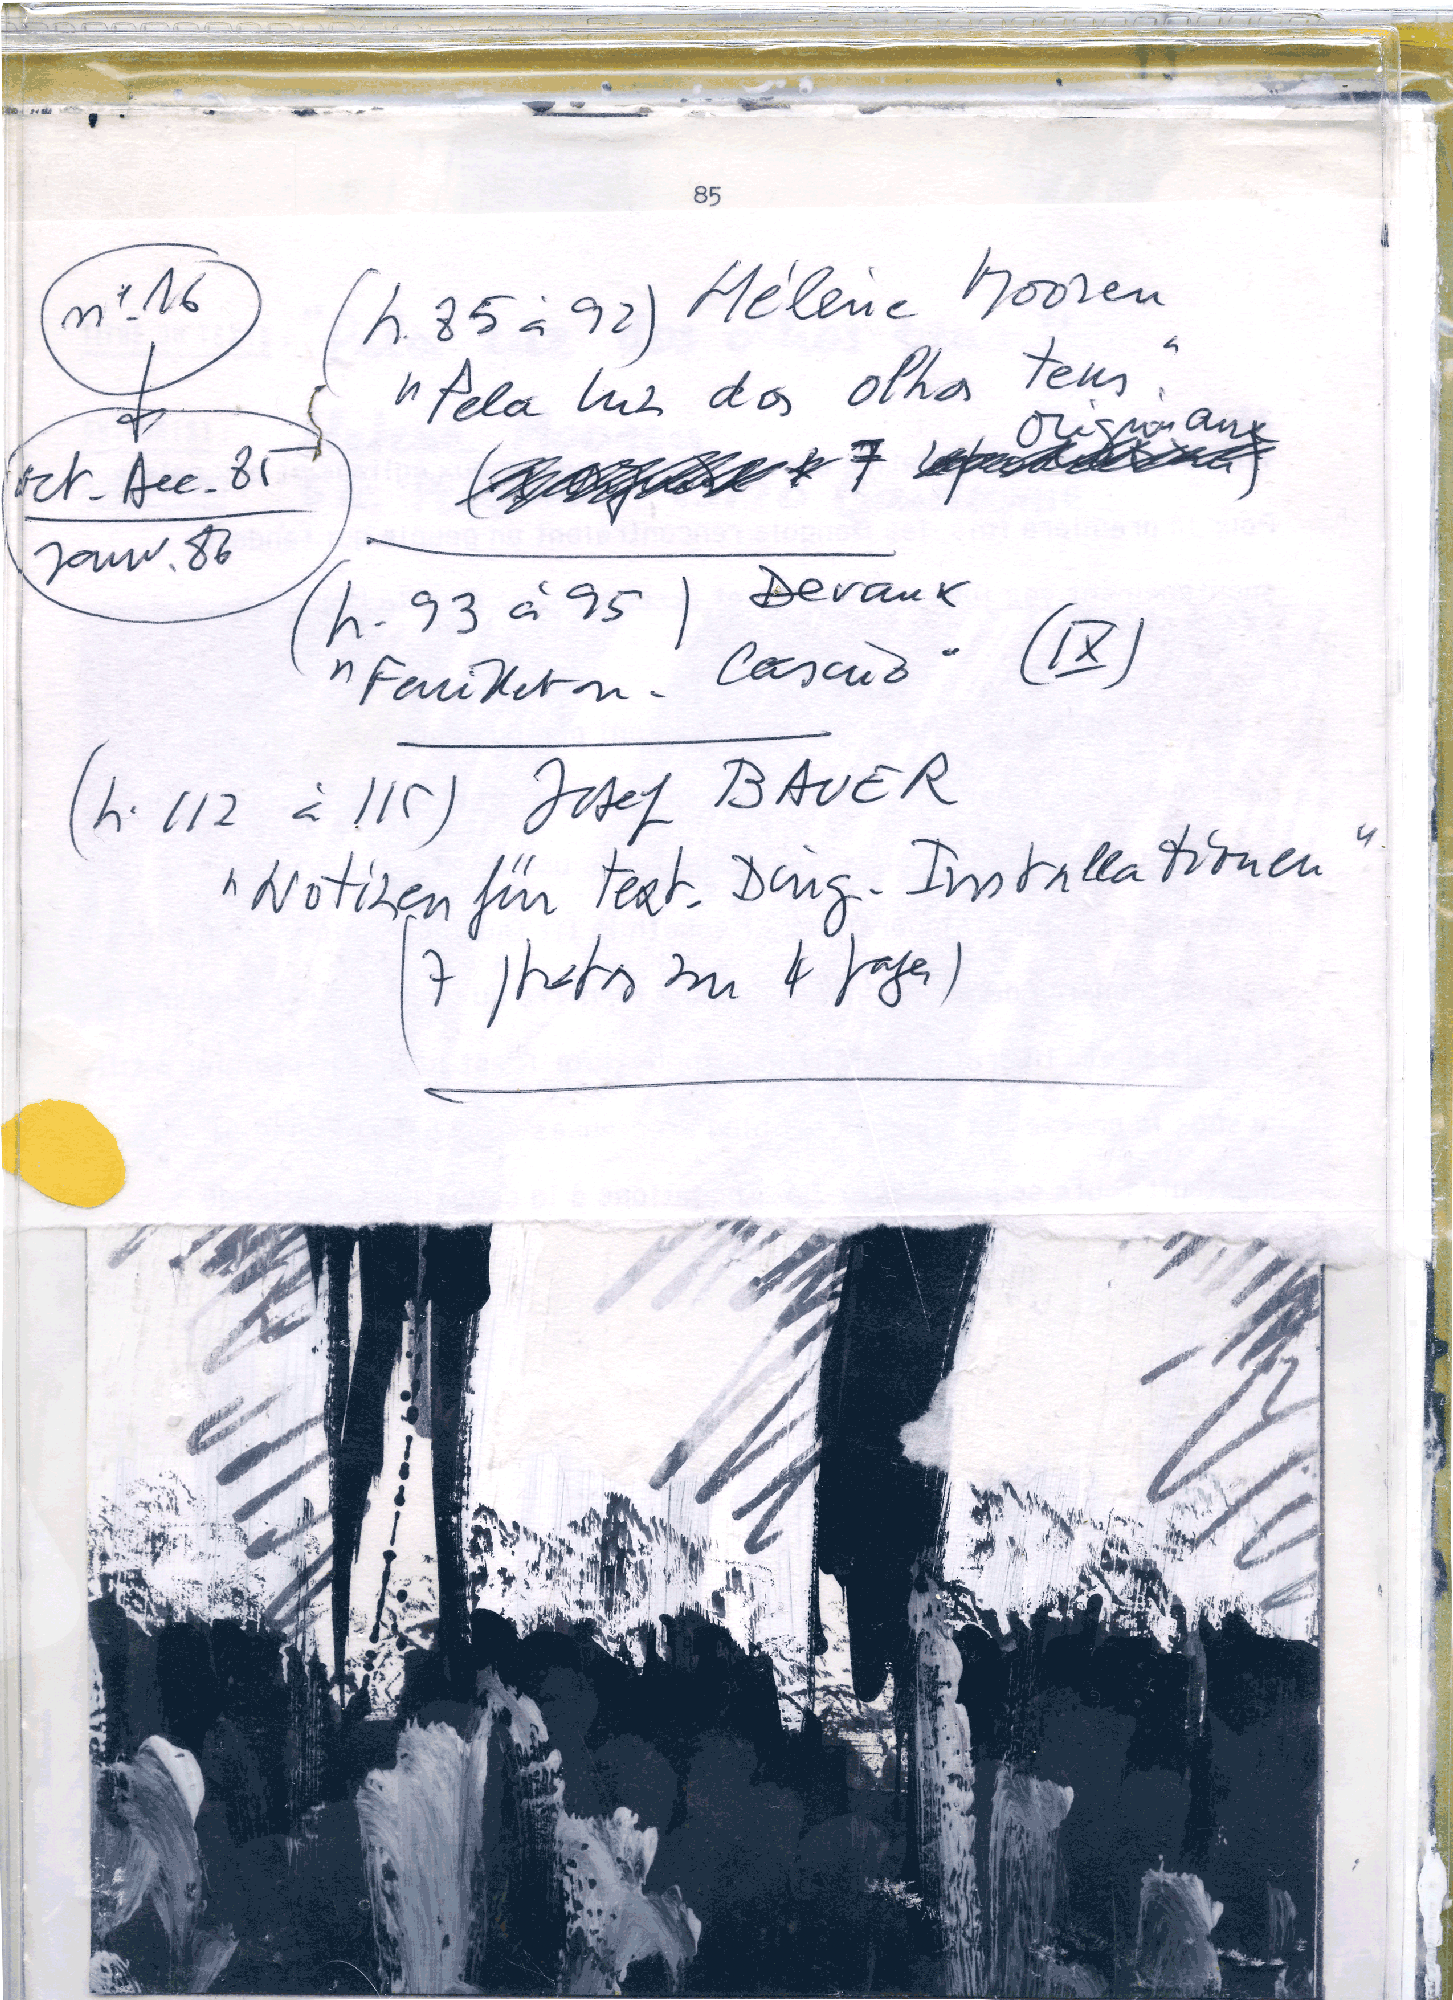 85
n° 16
oct. déc. 85
janv. 86
(p. 85 à 92) Hélène Mooren
"Pela luz dos olhos teus"
originaux
7
(p. 93 à 95) Devaux
"Feuilleton. Casino" (IX)
(p. 112 à 115) Josef BAUER
"Notizen für Text. Ding. Installationen"
(7 photos sur 4 pages)